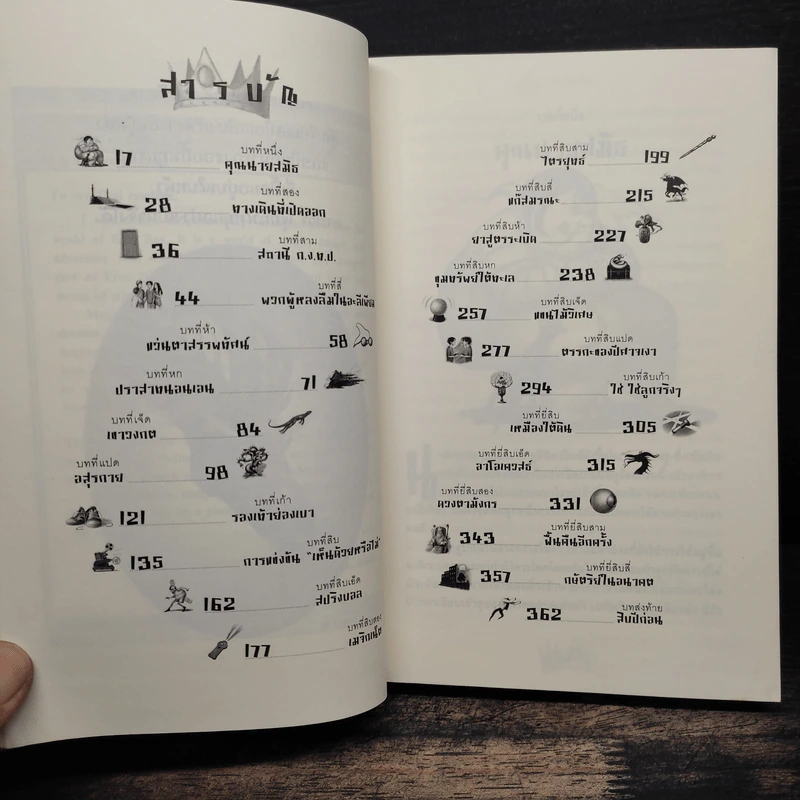 สารบัญ
บทที่หนึ่ง
17 คุณนายสมิธ
บทที่สอง
28 ทางเดินที่เปิดออก
บทที่สาม
36 สถานี ก.ง.ท.ป.
บทที่สี่
44 พวกผู้หลงลืมในอะลีเพียส
บทที่ห้า
แว่นตาสรรพทัศน์ 58
บทที่หก
ปราสาทนอนเอน 71
บทที่เจ็ด
เขาวงกต 84
บทที่แปด
อสุรกาย 98
บทที่เก้า
121 รองเท้าย่องเบา
บทที่สิบ
135 การแข่งขัน "เห็นด้วยหรือไม่"
บทที่สิบเอ็ด
162 สปริงบอล
บทที่สิบสอง
177 เมจิกเน็ต
บทที่สิบสาม
ไตรยุทธ์ 199
บทที่สิบสี่
แก๊สมรณะ 215
บทที่สิบห้า
ยาสูตรระเบิด 227
บทที่สิบหก
ขุมทรัพย์ใต้ทะเล 238
บทที่สิบเจ็ด
257 แขนไม้วิเศษ
บทที่สิบแปด
277 ตรรกะของปีศาจเงา
บทที่สิบเก้า
294 ใช่ ใช่ลูกจริงๆ
บทที่ยี่สิบ
เหมืองใต้ดิน 305
บทที่ยี่สิบเอ็ด
อาโอเควสธ์ 315
บทที่ยี่สิบสอง
ดวงตามังกร 331
บทที่ยี่สิบสาม
343 ฟื้นคืนอีกครั้ง
บทที่ยี่สิบสี่
357 กษัตริย์ในอนาคต
บทส่งท้าย
362 สิบปีก่อน